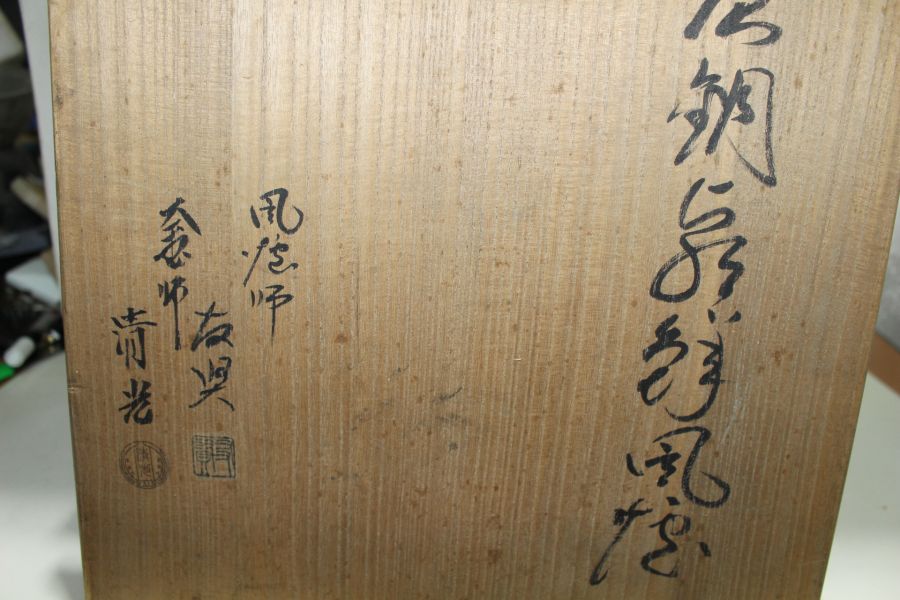 唐銅朝鮮風炉
風炉師
友興
釜師
清光